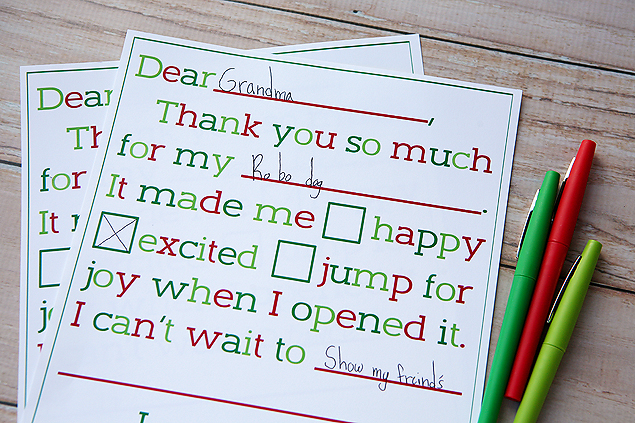 Dear Grandma,
Thank you so much
for my Robo dog.
It made me happy
excited jump for
joy when I opened it.
I can't wait to Show my fraind's
Dear
Th
for
It
jo